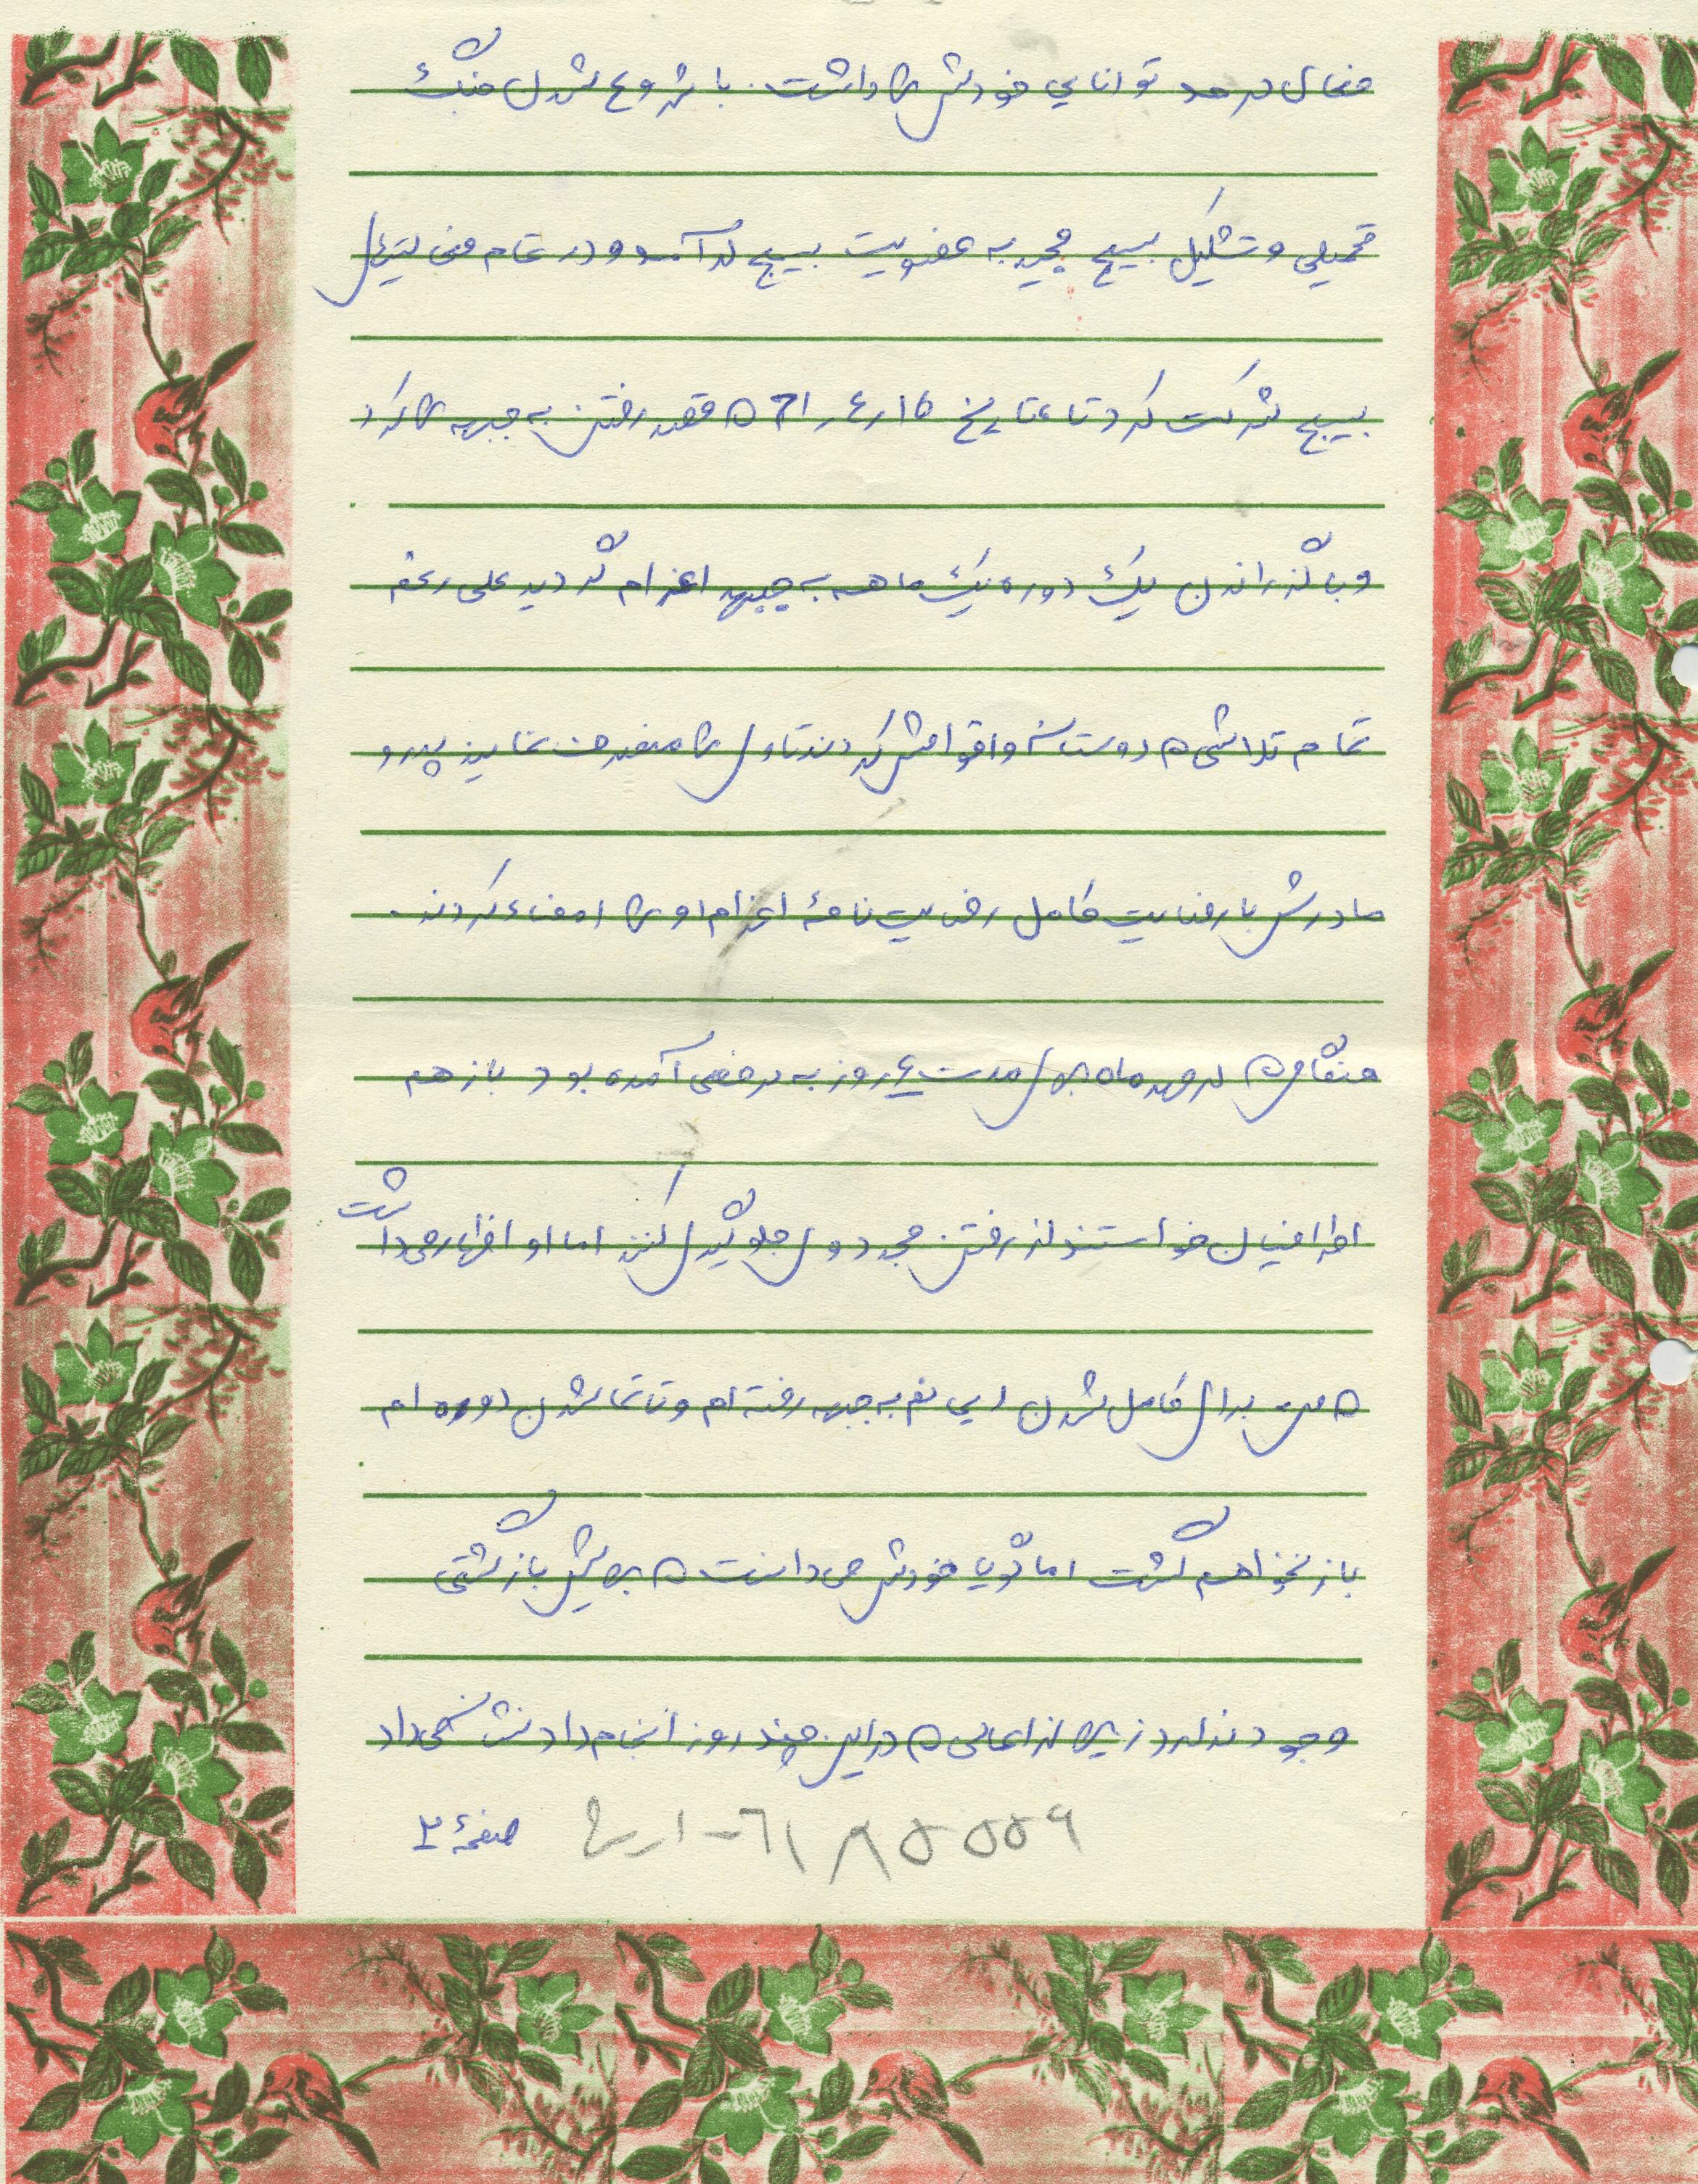 فعال در حد توانایی خودش را داشت. با شروع شدن جنگ
تحمیلی و تشکیل بسیج مجید به عضویت بسیج درآمد و در تمام فعالیتهای
بسیج شرکت کرد تا تاریخ ۱۵ر۴ر۶۱ که قصد رفتن به جبهه را کرد
و با گذراندن یک دوره یک ماهه به جبهه اعزام گردید علی رغم
تمام تلاشی که دوستان و اقوامش کردند تا وی را منصرف نمایند پدر و
مادرش با رضایت کامل رضایت نامهٔ اعزام او را امضاء کردند.
هنگامی که در مهر ماه برای مدت ۴ روز به مرخصی آمده بود باز هم
اطرافیان خواستند از رفتن مجدد وی جلوگیری کنند اما او اظهار می داشت
که من برای کامل شدن ایمانم به جبهه رفته ام و تا تمام شدن دوره ام
باز نخواهم گشت اما گویا خودش می دانست که برایش بازگشتی
وجود ندارد زیرا از اعمالی که در این چند روز انجام داد نشان می داد
صفحهٔ ۲